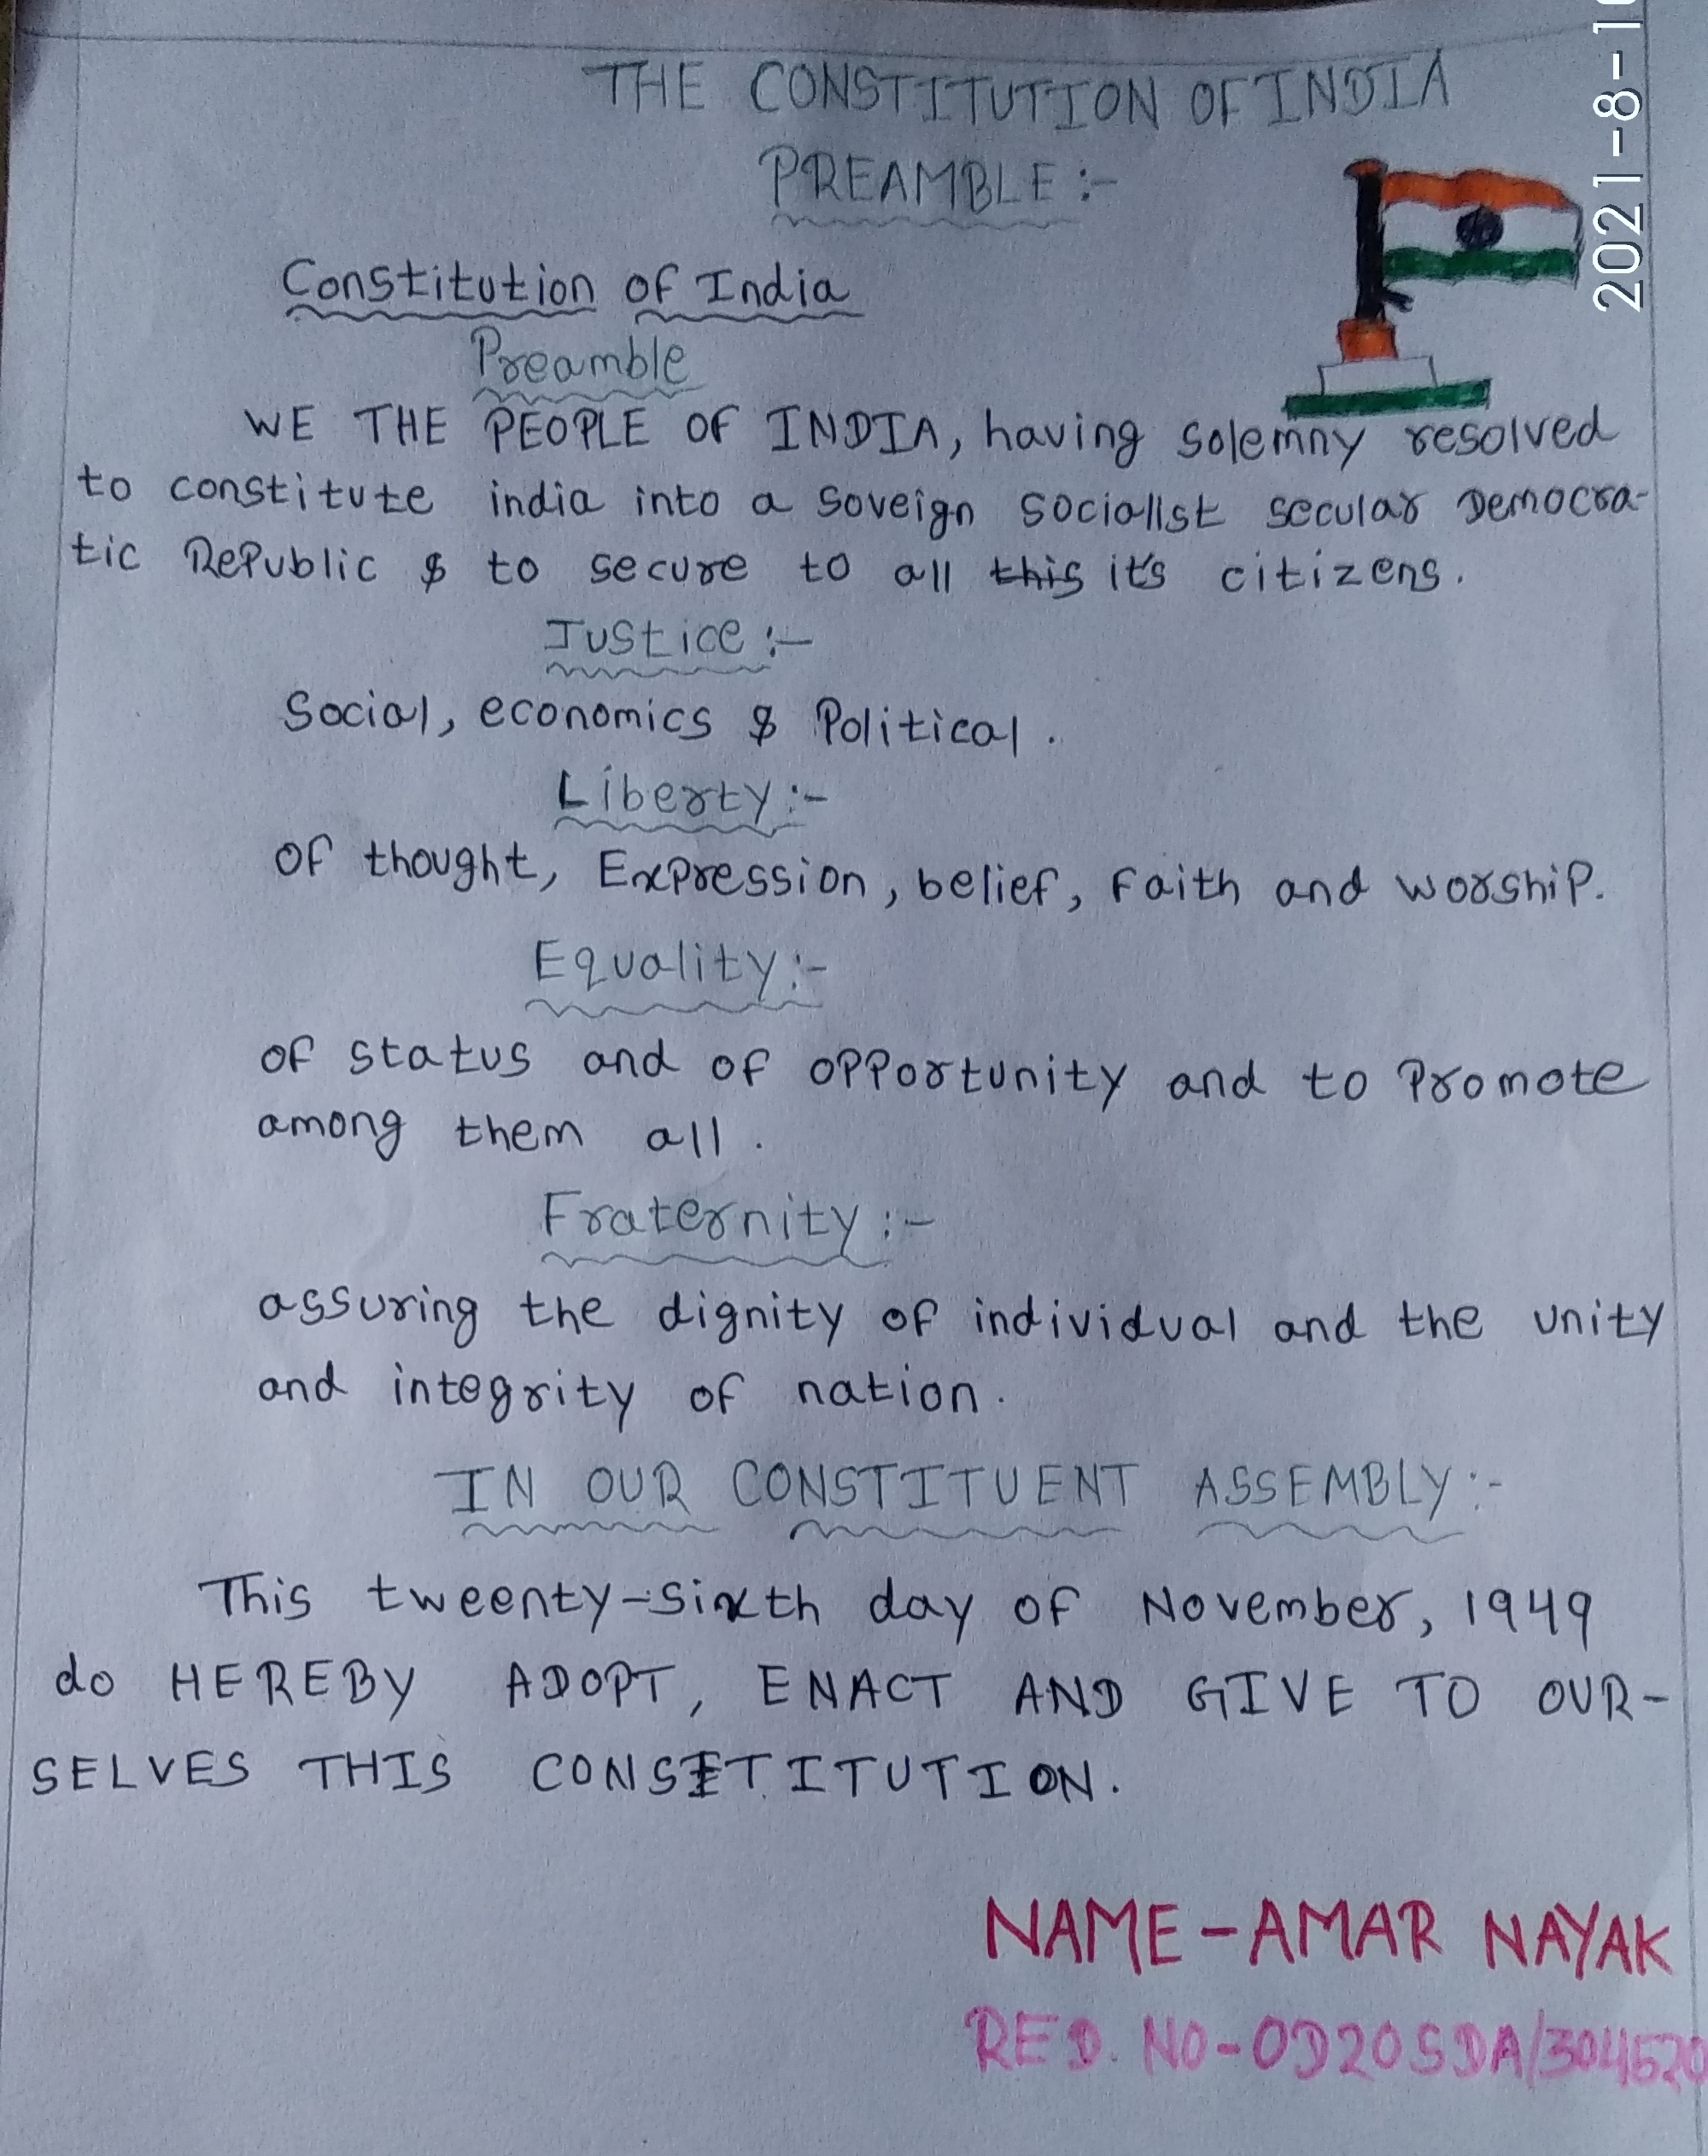 THE CONSTITUTION OF INDIA
PREAMBLE :-
Constitution of India
Preamble
WE THE PEOPLE OF INDIA, having solemny resolved
to constitute india into a soveign socialist secular Democra-
tic Republic & to secure to all this it's citizens.
Justice :-
Social, economics & Political.
Liberty :-
OF thought, Expression, belief, Faith and worship.
Equality :-
OF status and of opportunity and to Promote
among them all.
Fraternity :-
assuring the dignity of individual and the unity
and integrity of nation.
IN OUR CONSTITUENT ASSEMBLY :-
This tweenty-sixth day of November, 1949
do HEREBY ADOPT, ENACT AND GIVE TO OUR-
SELVES THIS CONSTITUTION.
NAME - AMAR NAYAK
RED. NO - OD20SDA/304520
2021-8-1